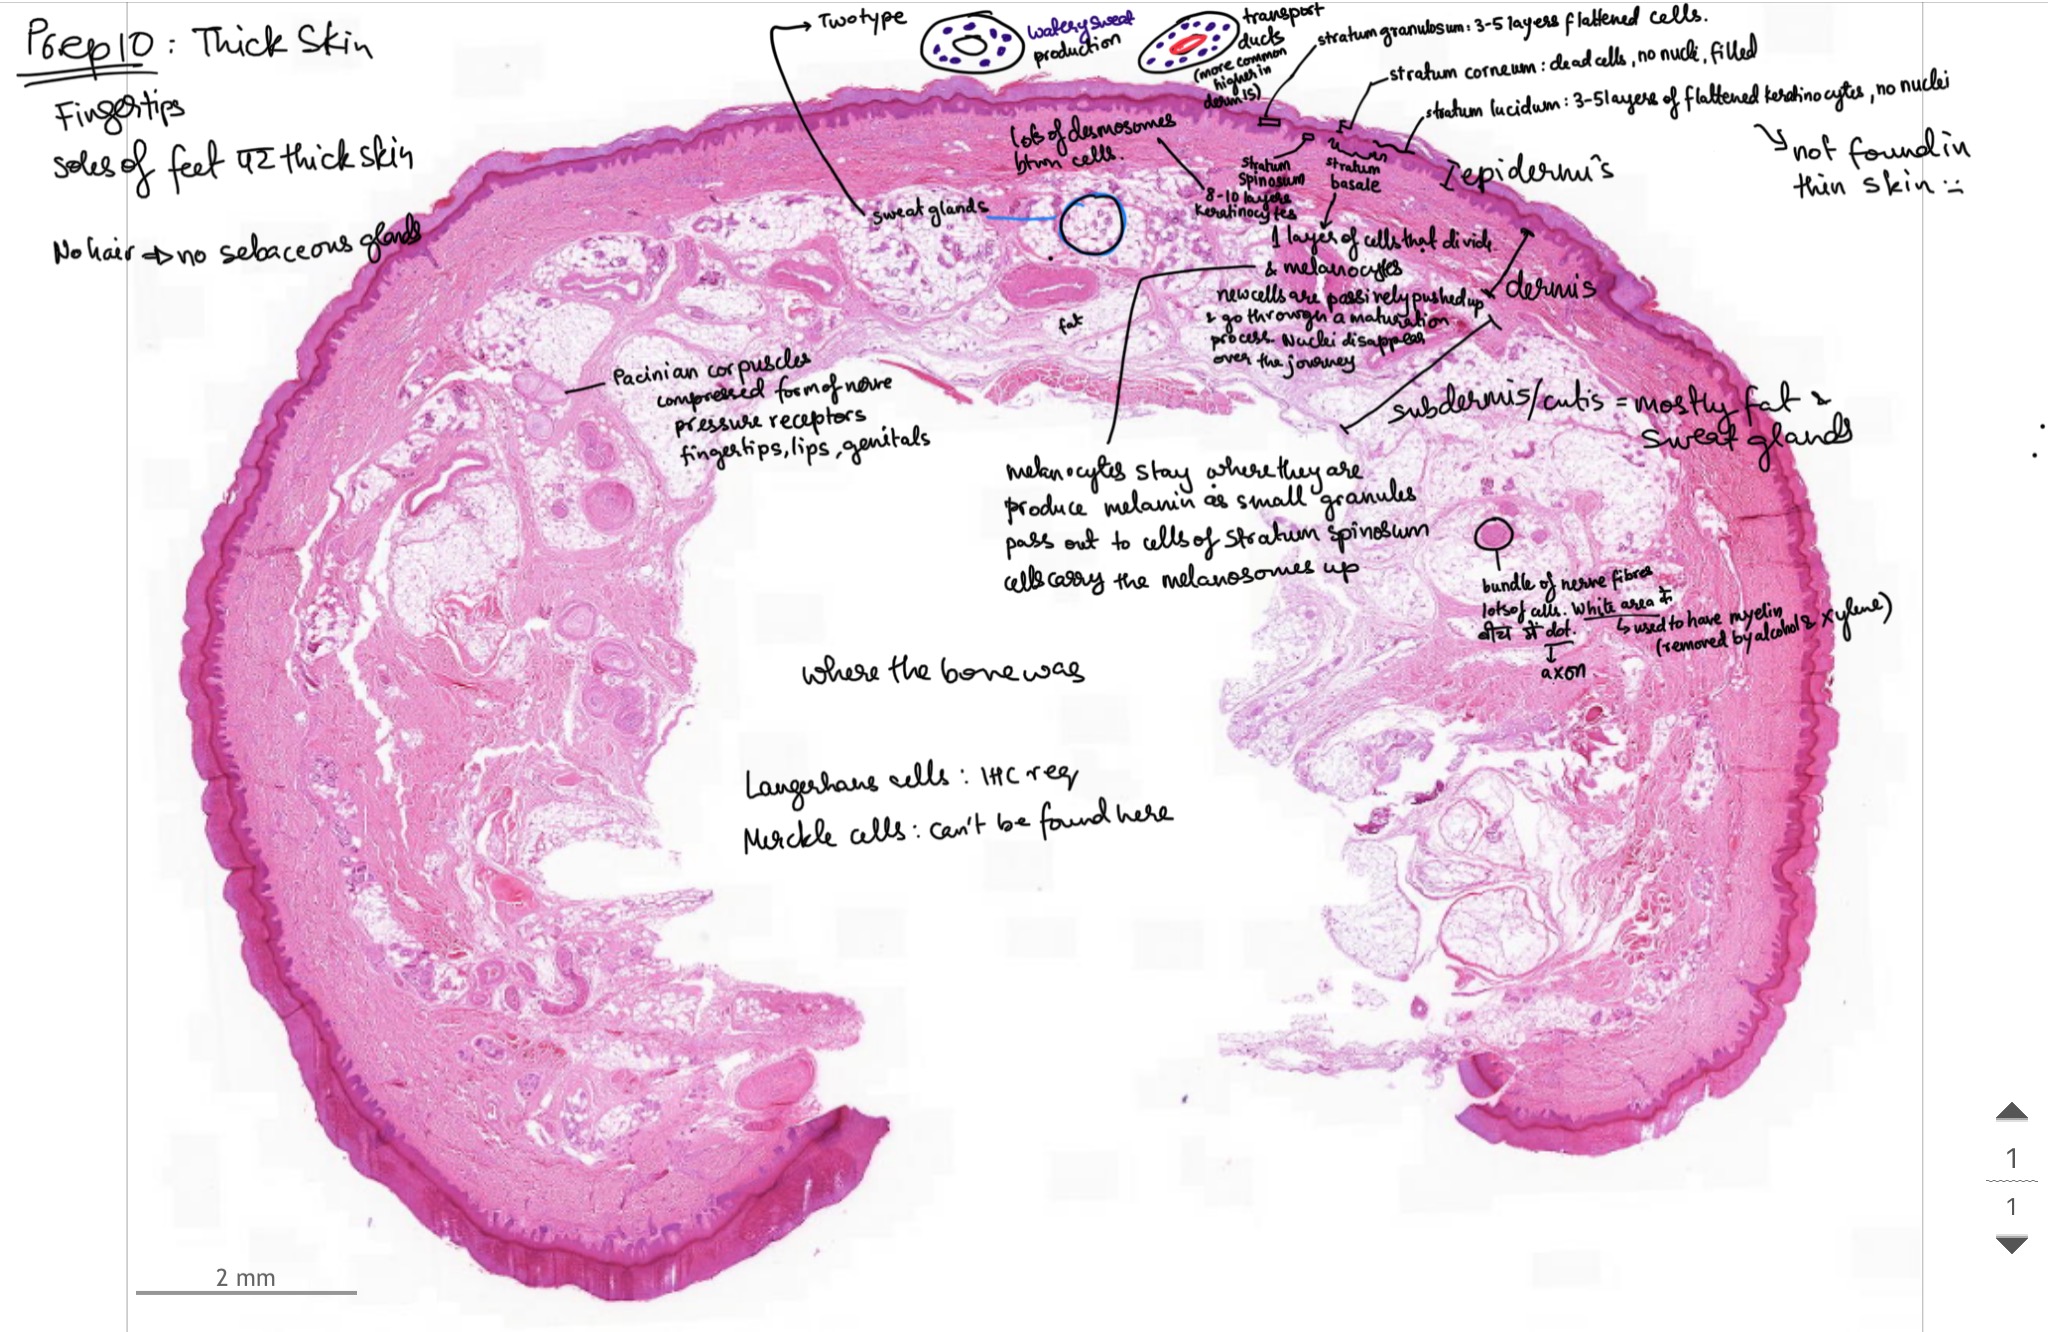 Prep 10 : Thick Skin
Fingertips
Soles of feet पर thick skin
No hair => no sebaceous glands
Two type
watery sweat
production
transport
ducts
(more common
higher in
dermis)
stratum granulosum: 3-5 layers flattened cells.
stratum corneum : dead cells, no nucli, filled
stratum lucidum: 3-5 layers of flattened keratinocytes, no nuclei
not found in
thin skin
epidermis
lots of desmosomes
btwn cells.
Stratum
Spinosum
8-10 layers
keratinocytes
stratum
basale
1 layer of cells that divide
& melanocytes
new cells are passively pushed up
& go through a maturation
process. Nuclei disappear
over the journey
sweat glands
dermis
fat
Pacinian corpuscles
compressed form of nerve
pressure receptors
fingertips, lips, genitals
subdermis/cutis = mostly fat &
sweat glands
melanocytes stay where they are
produce melanin as small granules
pass out to cells of Stratum spinosum
cells carry the melanosomes up
bundle of nerve fibres
lots of all. White area में
बीच में dot.
↳ used to have myelin
(removed by alcohol & xylene)
axon
where the bone was
Langerhans cells : IHC req
Merckle cells : can't be found here
2 mm
1
1